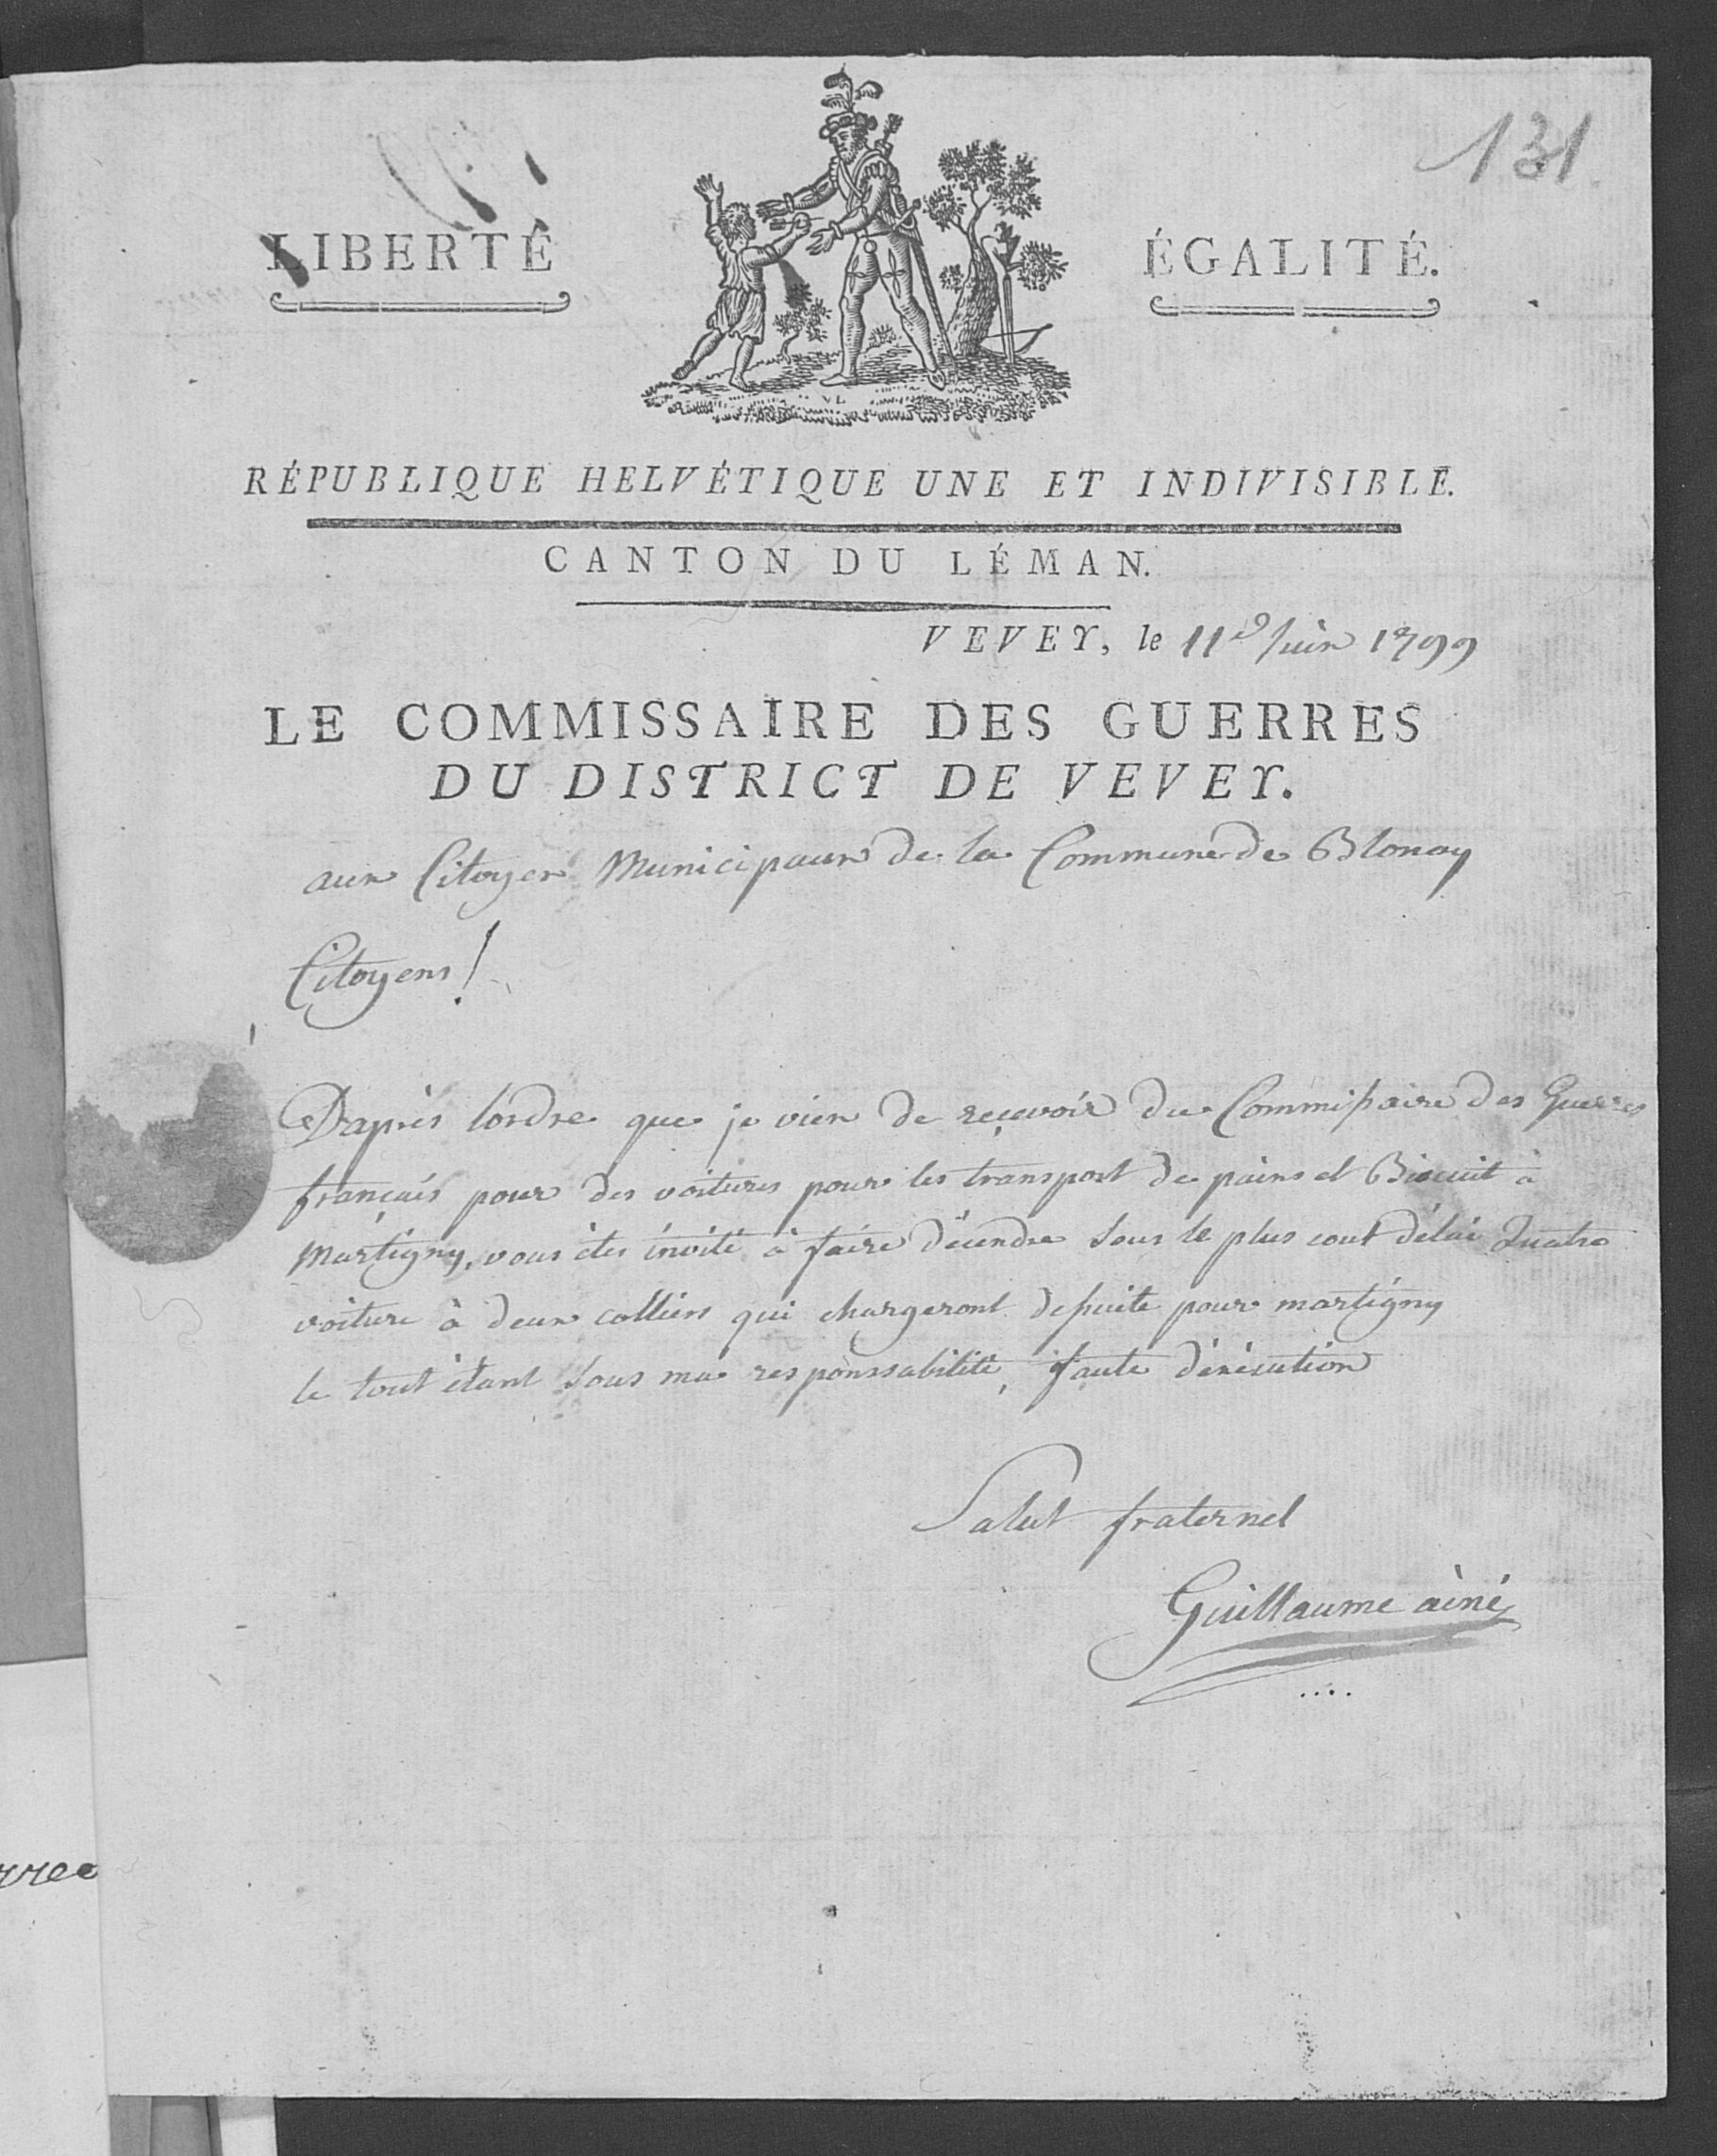 131
LIBERTÉ ÉGALITÉ.
RÉPUBLIQUE HELVÉTIQUE UNE ET INDIVISIBLE.
CANTON DU LÉMAN.
VEVEY, le 11e Juin 1799
LE COMMISSAIRE DES GUERRES
DU DISTRICT DE VEVEY.
aux Citoyen Municipaux de la Commune de Blonay
Citoyens !
D'aprés lordre que je vien de reçevoir du Commissaire des Guerres
français pour des voitures pour les transport de pains et Biscuit à
Martigny, vous étes invité à faire décendre sous le plus court délai Quatre
voiture à deux colliers qui chargeront desuite pour martigny
le tout étant sous ma responssabilité, faute d'éxécution
Salut fraternel
Guillaume ainé